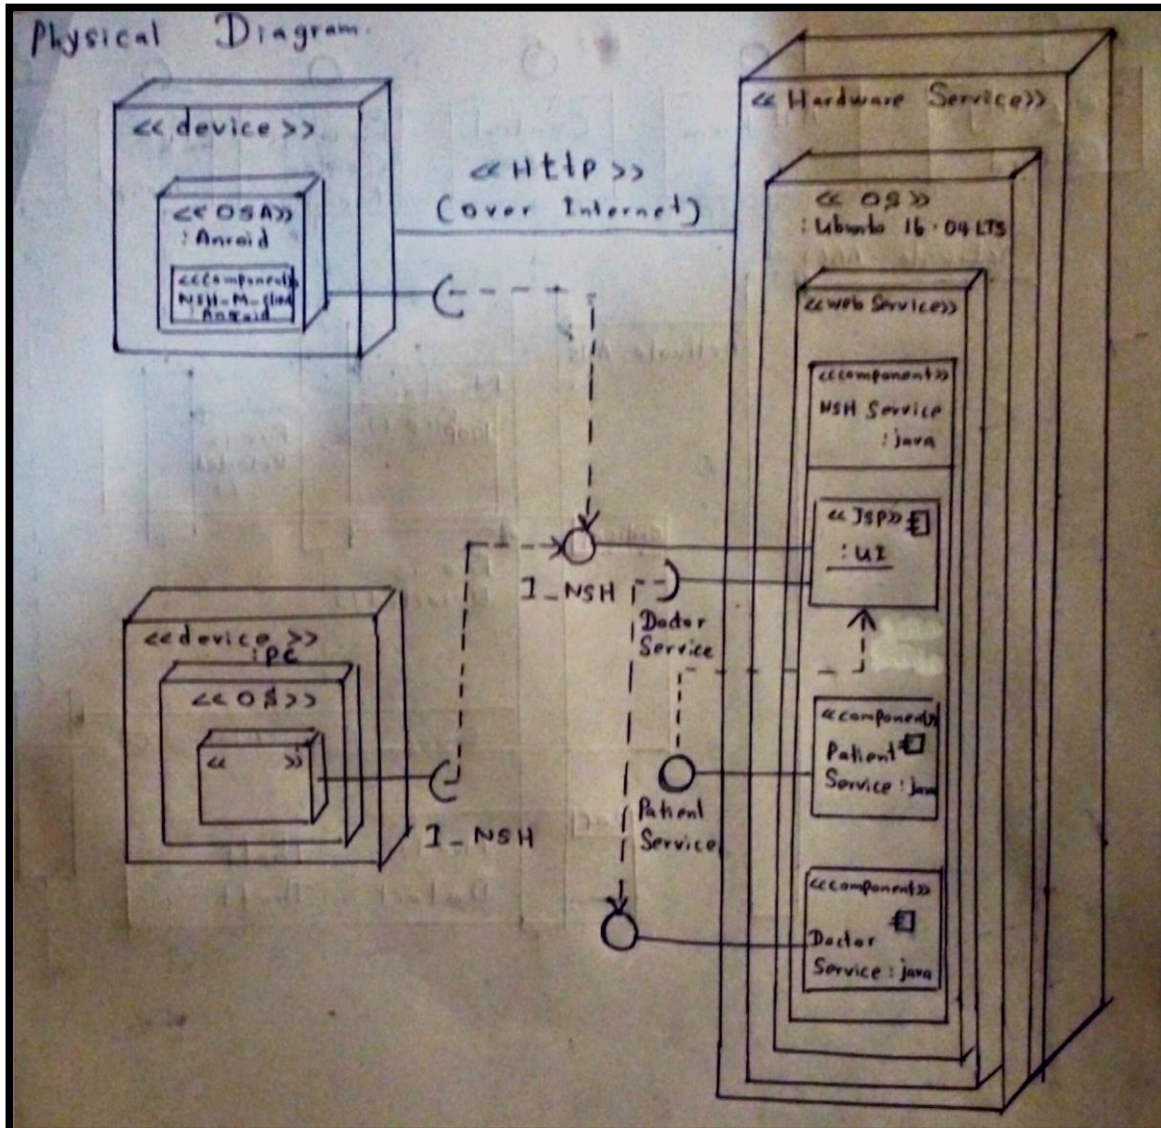 Physical Diagram.
<< device >>
<< OSA>>
: Anroid
<<Component>>
NSH_M_
: Anroid
<<Http>>
(over Internet)
<< Hardware Service>>
<< OS >>
: Ubunto 16.04 LTS
<<web Service>>
<<component>>
NSH Service
: java
<< JSP>>
: UI
I_NSH
Doctor
Service
<<device >>
: PC
<< OS >>
<< >>
I_NSH
Patient
Service
<<component>>
Patient
Service : java
<<component>>
Doctor
Service : java